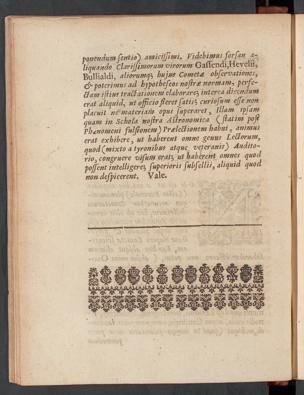 ponendum sentio) amicissimi. Videbimus forsan a-
liquando Clarissimorum virorum Gassendi, Hevelii,
Bullialdi, aliorumq; hujus Cometæ observationes,
& poterimus ad hypotheseos nostræ normam, perfe-
ctam istius tractationem elaborare; interea dicendum
erat aliquid, ut officio fieret satis; curiosum esse non
placuit ne materiam opus superaret, Illam ipsam
quam in Schola nostra Astronomica (statim post
Phænomeni fulsionem) Prælectionem habui, animus
erat exhibere, ut haberent omne genus Lectorum,
quod (mixto a tyronibus atque veteranis) Audito-
rio, congruere visum erat; ut haberent omnes quod
possent intelligere; superioris subsellii, aliquid quod
non despicerent. Vale.